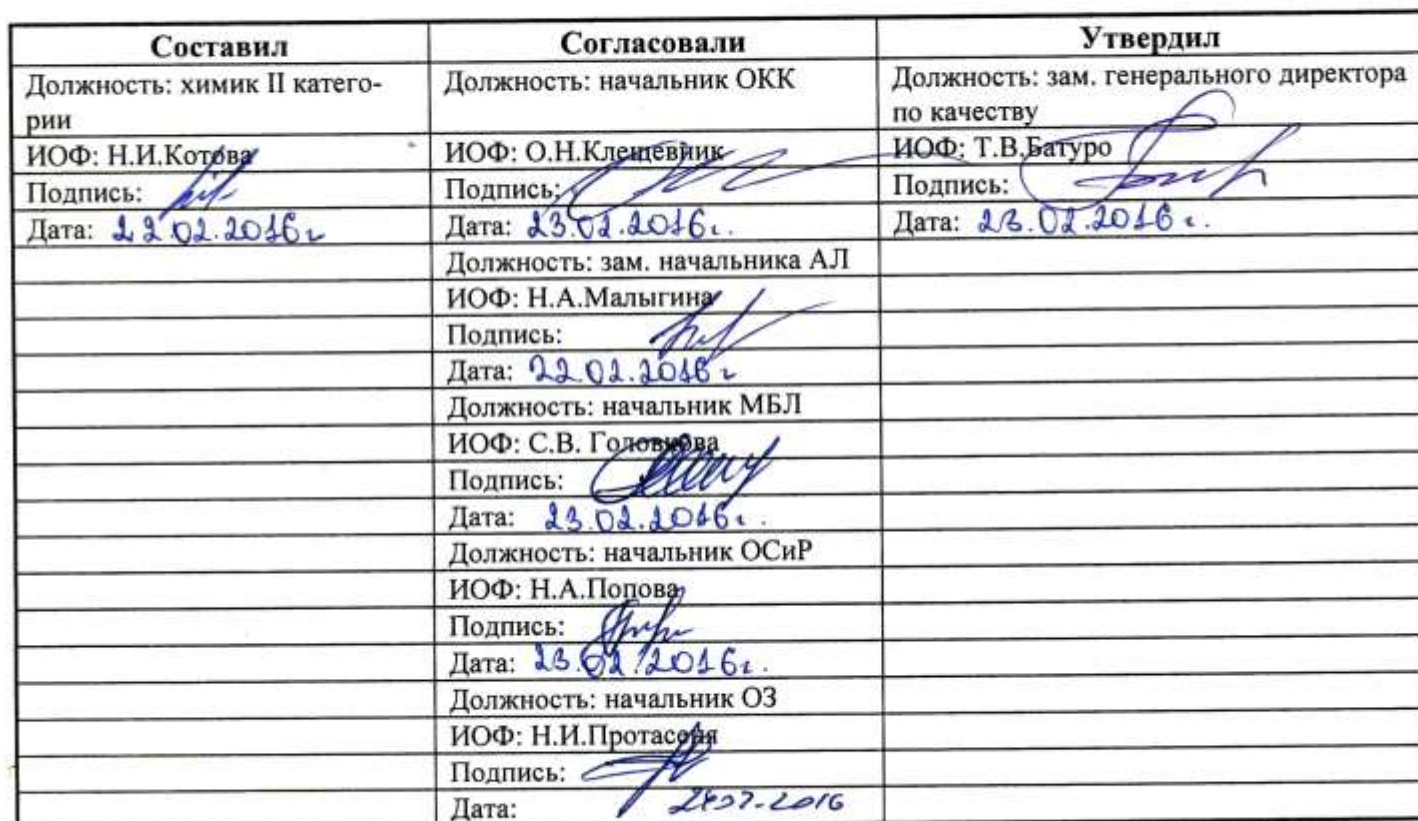 Составил Согласовали Утвердил
Должность: химик II катего-
рии
Должность: начальник ОКК
Должность: зам. генерального директора
по качеству
ИОФ: Н.И.Котова ИОФ: О.Н.Клещевник ИОФ: Т.В.Батуро
Подпись: Подпись: Подпись:
Дата: 22.02.2016г Дата: 23.02.2016г. Дата: 23.02.2016г.
Должность: зам. начальника АЛ
ИОФ: Н.А.Малыгина
Подпись:
Дата: 22.02.2016г
Должность: начальник МБЛ
ИОФ: С.В. Головкова
Подпись:
Дата: 23.02.2016г.
Должность: начальник ОСиР
ИОФ: Н.А.Попова
Подпись:
Дата: 23.02.2016г.
Должность: начальник ОЗ
ИОФ: Н.И.Протасеня
Подпись:
Дата: